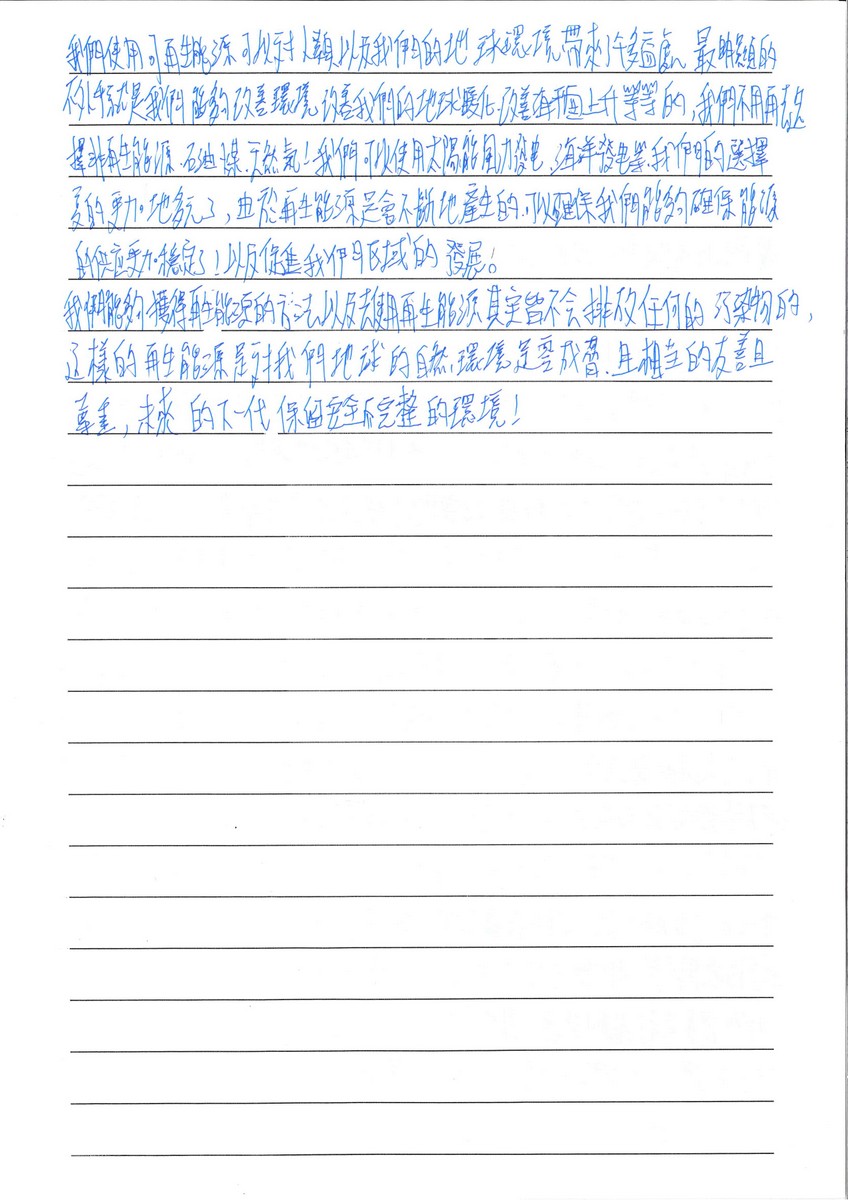 我們使用可再生能源可以對人類以及我們的地球環境帶來許多益處、最明顯的
不外乎就是我們能夠改善環境、改善我們的地球暖化、改善海平面上升等等的,我們不用再去選
擇非再生能源、石油、煤、天然氣!我們可以使用太陽能、風力發电、海洋發电等,我們的選擇
變的更加地多元了,由於再生能源是會不斷地產生的、可以確保我們能夠確保能源
的供應更加穩定了!以及促進我們区域的發展!
我們能夠獲得再生能源的方法,以及去使用再生能源其实皆不会排放任何的污染物的,
這樣的再生能源是對我們地球的自然環境是零威脅、且相当的友善且
尊重,未來的下一代保留安全而完整的環境!